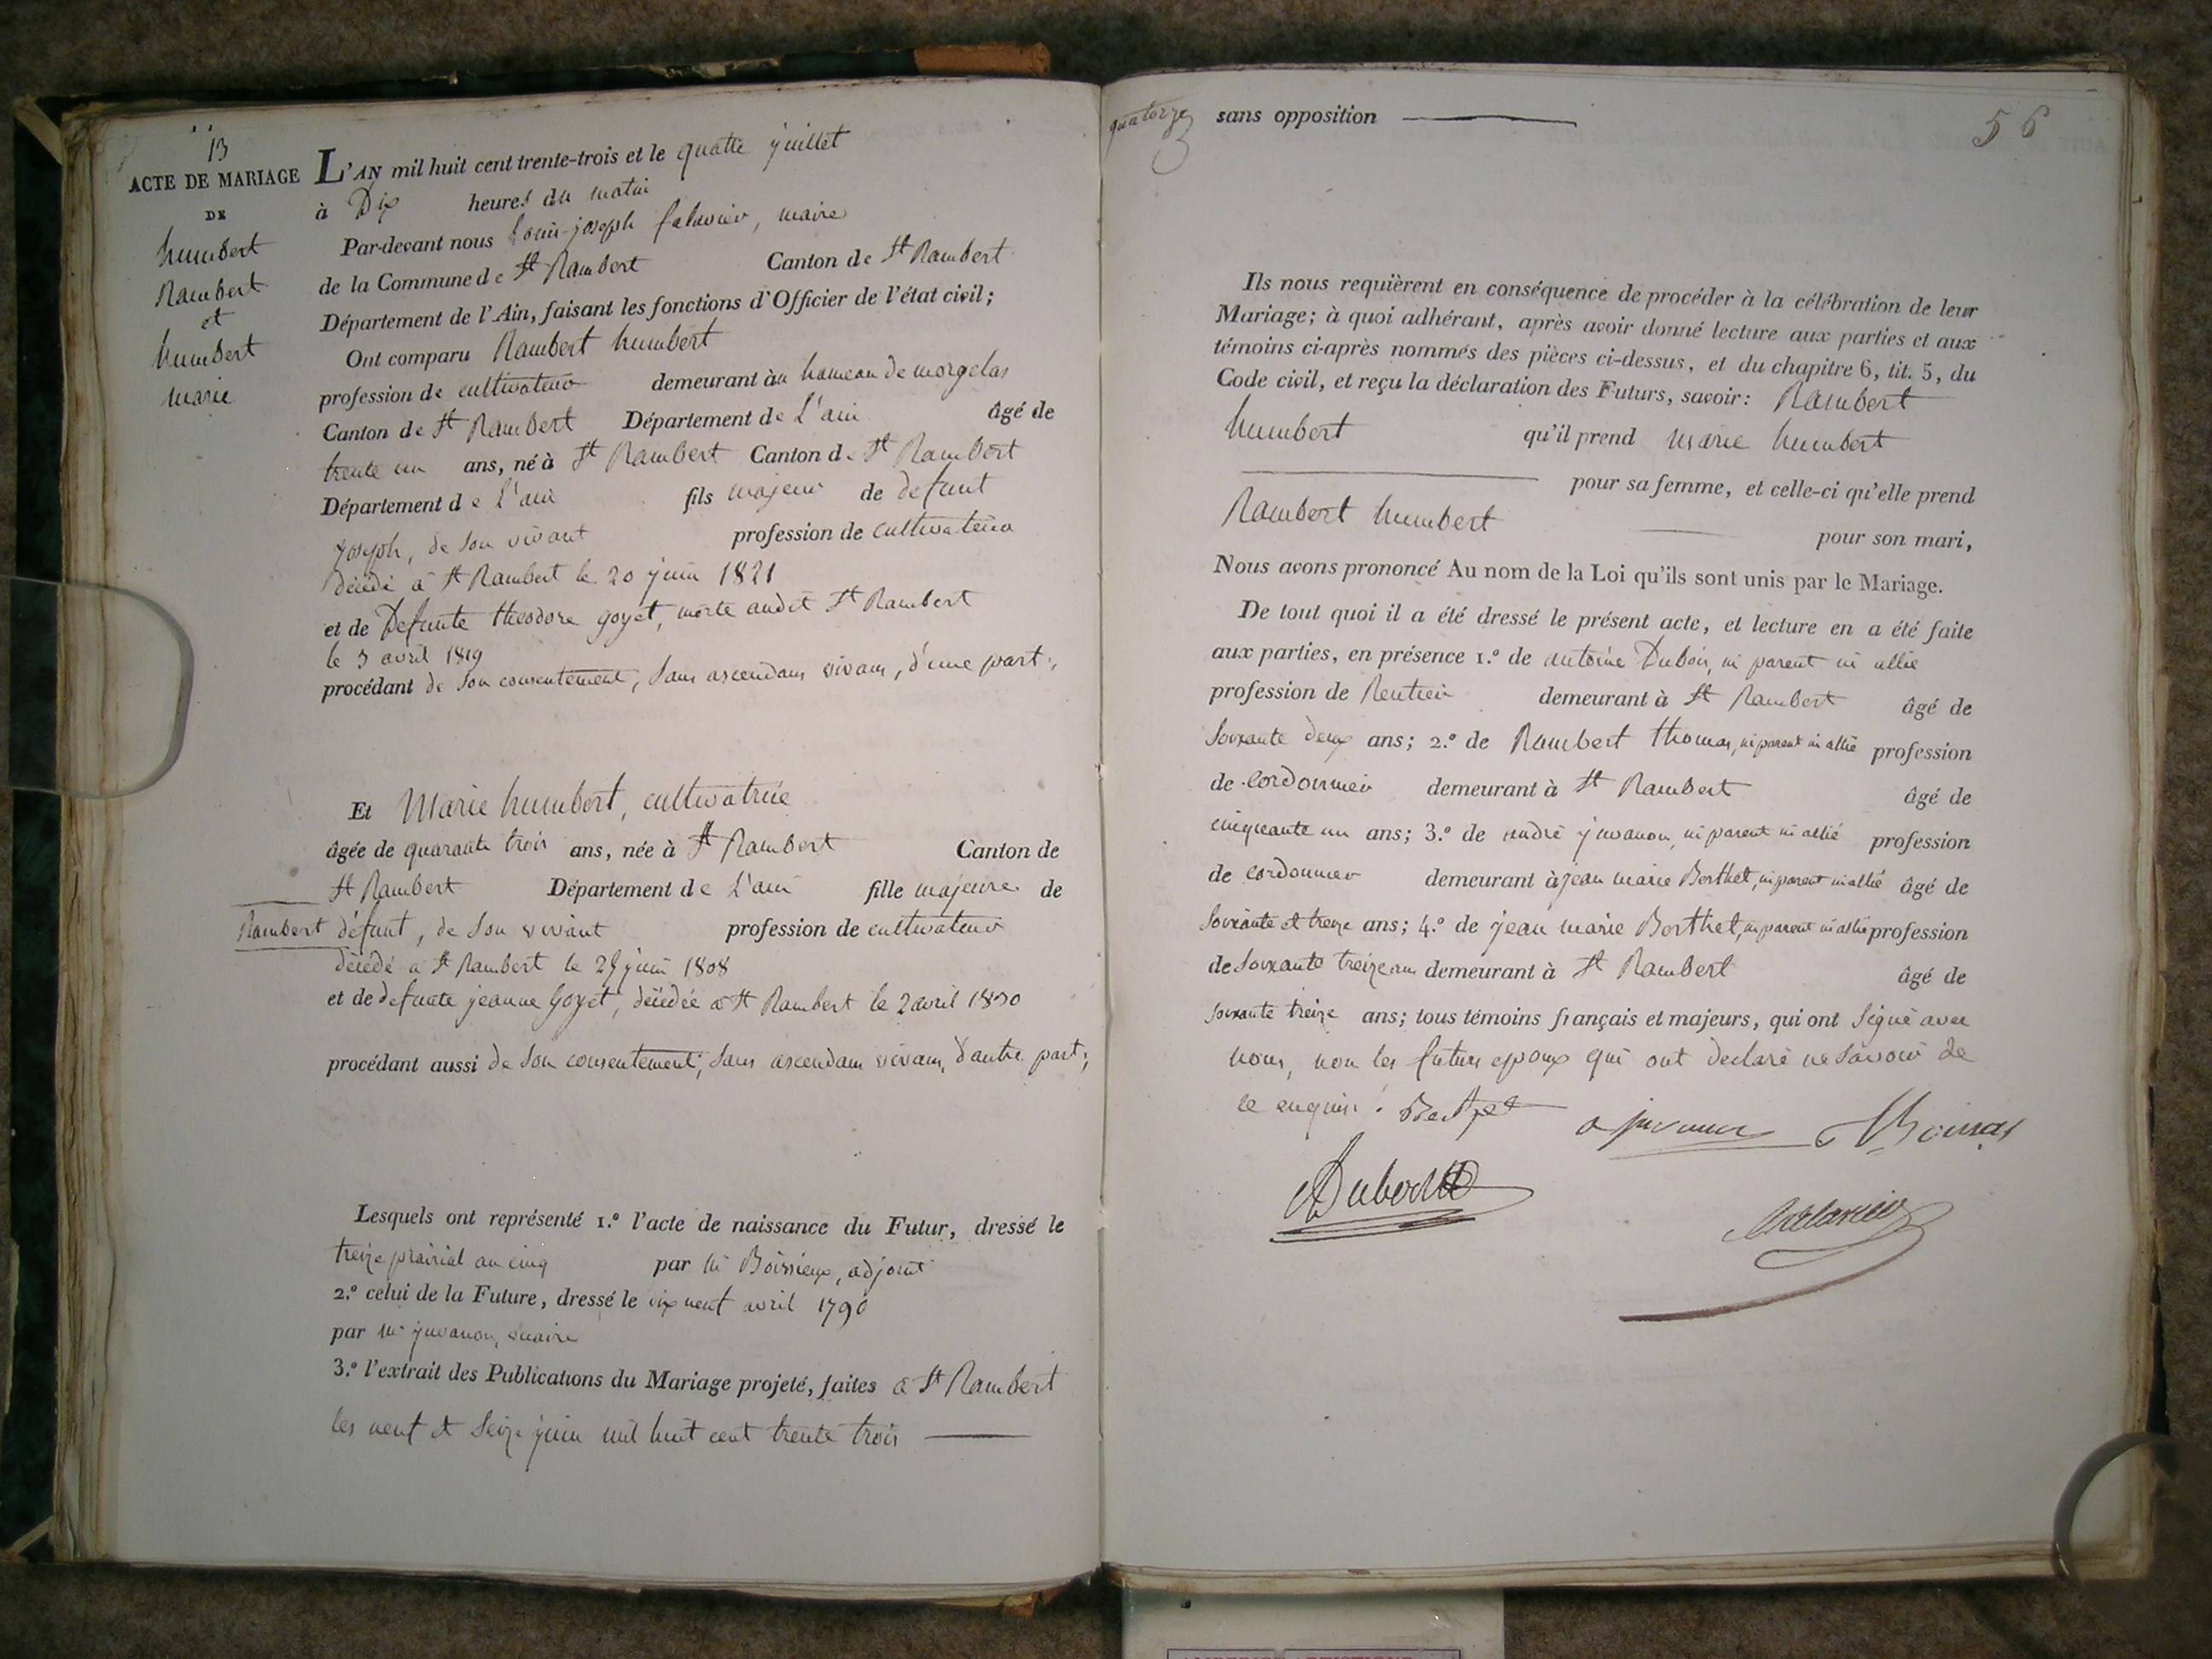 13
ACTE DE MARIAGE
DE
humbert
Rambert
et
humbert
marie
L'AN mil huit cent trente-trois et le quatre juillet
à Dix heures du matin
Par-devant nous Louis-joseph falavier, maire
de la Commune de St Rambert Canton de St Rambert
Département de l'Ain, faisant les fonctions d'Officier de l'état civil;
Ont comparu Rambert humbert
profession de cultivateur demeurant àu hameau de morgelas
Canton de St Rambert Département de L'ain âgé de
trente un ans, né à St Rambert Canton de St Rambert
Département de L'ain fils majeur de defunt
Joseph, de son vivant profession de cultivateur
décédé à St Rambert le 20 juin 1821
et de Defunte theodore goyet, morte audit St Rambert
le 3 avril 1819
procédant de son consentement, sans ascendans vivans, d'une part;
Et Marie humbert, cultivatrice
âgée de quarante trois ans, née à St Rambert Canton de
St Rambert Département de L'ain fille majeure de
Rambert défunt, de son vivant profession de cultivateur
décédé à St Rambert le juin 1808
et de defunte jeanne Goyet, décédée à St Rambert le 2 avril
procédant aussi de son consentement, sans ascendans vivans, d'autre part;
Lesquels ont représenté 1.º l'acte de naissance du Futur, dressé le
treize prairial an cinq par Mr Boissieux, adjoint
2.º celui de la Future, dressé le dix neuf avril 1790
par Mr juvanon, maire
3.º l'extrait des Publications du Mariage projeté, faites à St Rambert
les neuf et seize juin mil huit cent trente trois
quatorze
sans opposition
56
Ils nous requièrent en conséquence de procéder à la célébration de leur
Mariage; à quoi adhérant, après avoir donné lecture aux parties et aux
témoins ci-après nommés des pièces ci-dessus, et du chapitre 6, tit. 5, du
Code civil, et reçu la déclaration des Futurs, savoir: Rambert
humbert qu'il prend marie humbert
pour sa femme, et celle-ci qu'elle prend
Rambert humbert pour son mari,
Nous avons prononcé Au nom de la Loi qu'ils sont unis par le Mariage.
De tout quoi il a été dressé le présent acte, et lecture en a été faite
aux parties, en présence 1.º de antoine Dubois, ni parent ni allié
profession de Rentier demeurant à St Rambert âgé de
soixante deux ans; 2.º de Rambert thomas, ni parent ni allié profession
de cordonnier demeurant à St Rambert âgé de
cinquante un ans; 3.º de andré juvanon, ni parent ni allié profession
de cordonnier demeurant à jean marie Berthet, ni parent ni allié âgé de
soixante et treize ans; 4.º de jean marie Berthet, ni parent ni allié profession
de soixante treize ans demeurant à St Rambert âgé de
soixante treize ans; tous témoins français et majeurs, qui ont signé avec
nous, non les futurs epoux qui ont declaré ne savoir de
ce enquis. Berthet
a juvanon
Dubois